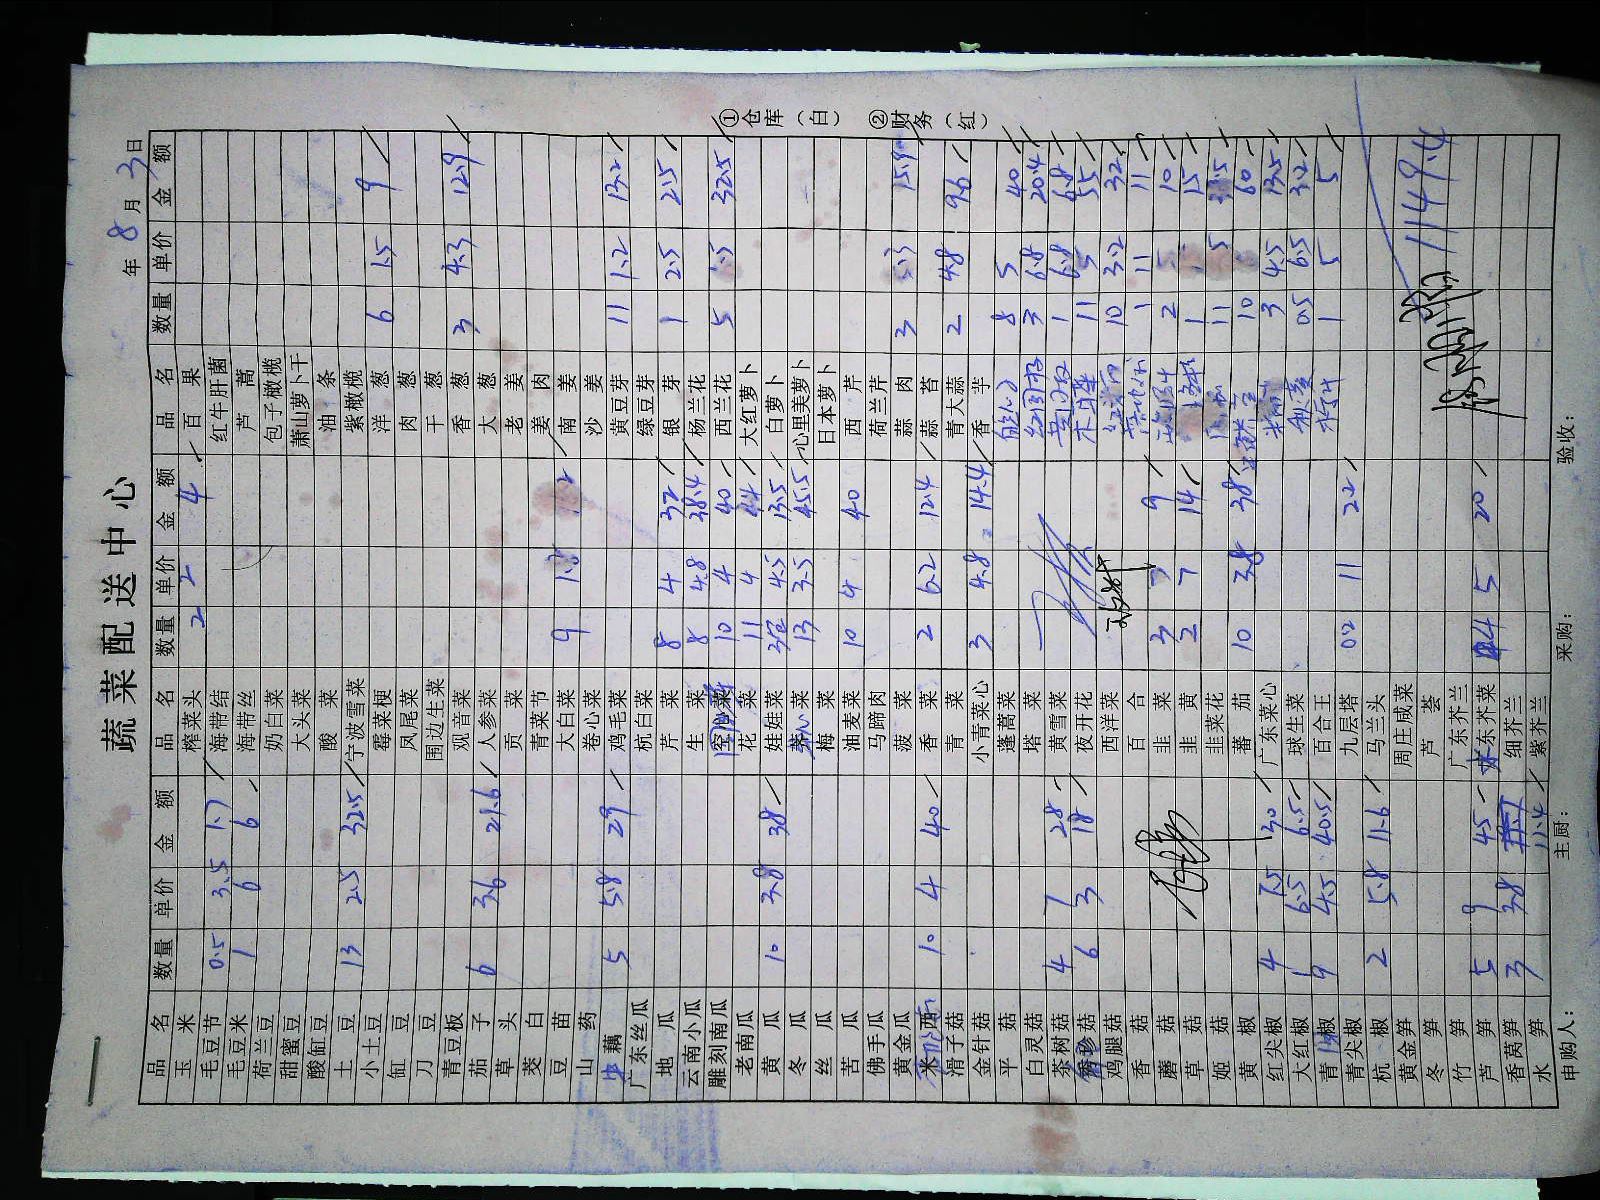 蔬菜配送中心
年 8 月 3 日
品名 数量 单价 金额 品名 数量 单价 金额 品名 数量 单价 金额
玉米 榨菜头 2 2 4 百果
毛豆节 0.5 3.5 1.7 海带结 红牛肝菌
毛豆米 1 6 6 海带丝 芦蒿
荷兰豆 奶白菜 包子橄榄
甜蜜豆 大头菜 萧山萝卜干
酸缸豆 酸菜 油条
土豆 13 2.5 32.5 宁波雪菜 紫橄榄
小土豆 霉菜梗 洋葱 6 1.5 9
缸豆 凤尾菜 肉葱
刀豆 围边生菜 干葱
青豆板 观音菜 香葱 3 4.3 12.9
茄子 6 3.6 21.6 人参菜 大葱
草头 贡菜 老姜
茭白 青菜节 姜肉
豆苗 大白菜 9 南姜
山药 卷心菜 沙姜
藕 5 5.8 29 鸡毛菜 黄豆芽 11 1.2 13.2
广东丝瓜 杭白菜 绿豆芽
地瓜 芹菜 8 4 32 银芽 1 2.5 2.5
云南小瓜 生菜 8 4.8 38.4 杨兰花
雕刻南瓜 10 4 40 西兰花 5 32.5
老南瓜 花菜 11 4 44 大红萝卜
黄瓜 10 3.8 38 娃娃菜 4.5 13.5 白萝卜
冬瓜 菜 13 3.5 45.5 心里美萝卜
丝瓜 梅菜 日本萝卜
苦瓜 油麦菜 10 4 40 西芹
佛手瓜 马蹄肉 荷兰芹
黄金瓜 菠菜 蒜肉 3 15.9
10 4 40 香菜 2 6.2 12.4 蒜苔
滑子菇 青菜 青大蒜 2 4.8 9.6
金针菇 小青菜心 3 4.8 14.4 香芋
平菇 蓬蒿菜 8 5 40
白灵菇 塔菜 3 6.8 20.4
茶树菇 4 7 28 黄雪菜 1 6.8 6.8
菇 6 3 18 夜开花 11 5 55
鸡腿菇 西洋菜 10 3.2 32
香菇 百合 1 11 11
蘑菇 韭菜 3 9 2 10
草菇 韭黄 2 7 14 1 15
姬菇 韭菜花 11
黄椒 蕃茄 10 3.8 38 10 60
红尖椒 4 7.5 30 广东菜心 3 4.5 13.5
大红椒 1 6.5 6.5 球生菜 0.5 6.5 3.2
青椒 9 4.5 40.5 百合王 1 5 5
青尖椒 九层塔 0.2 11 2.2
杭椒 2 5.8 11.6 马兰头
黄金笋 周庄咸菜
冬笋 芦荟
竹笋 广东芥兰
芦笋 5 9 45 东芥菜 4 5 20
香莴笋 3 3.8 细芥兰
水笋 11.4 紫芥兰
1149.4
申购人： 主厨： 采购： 验收：
①仓库（白） ②财务（红）